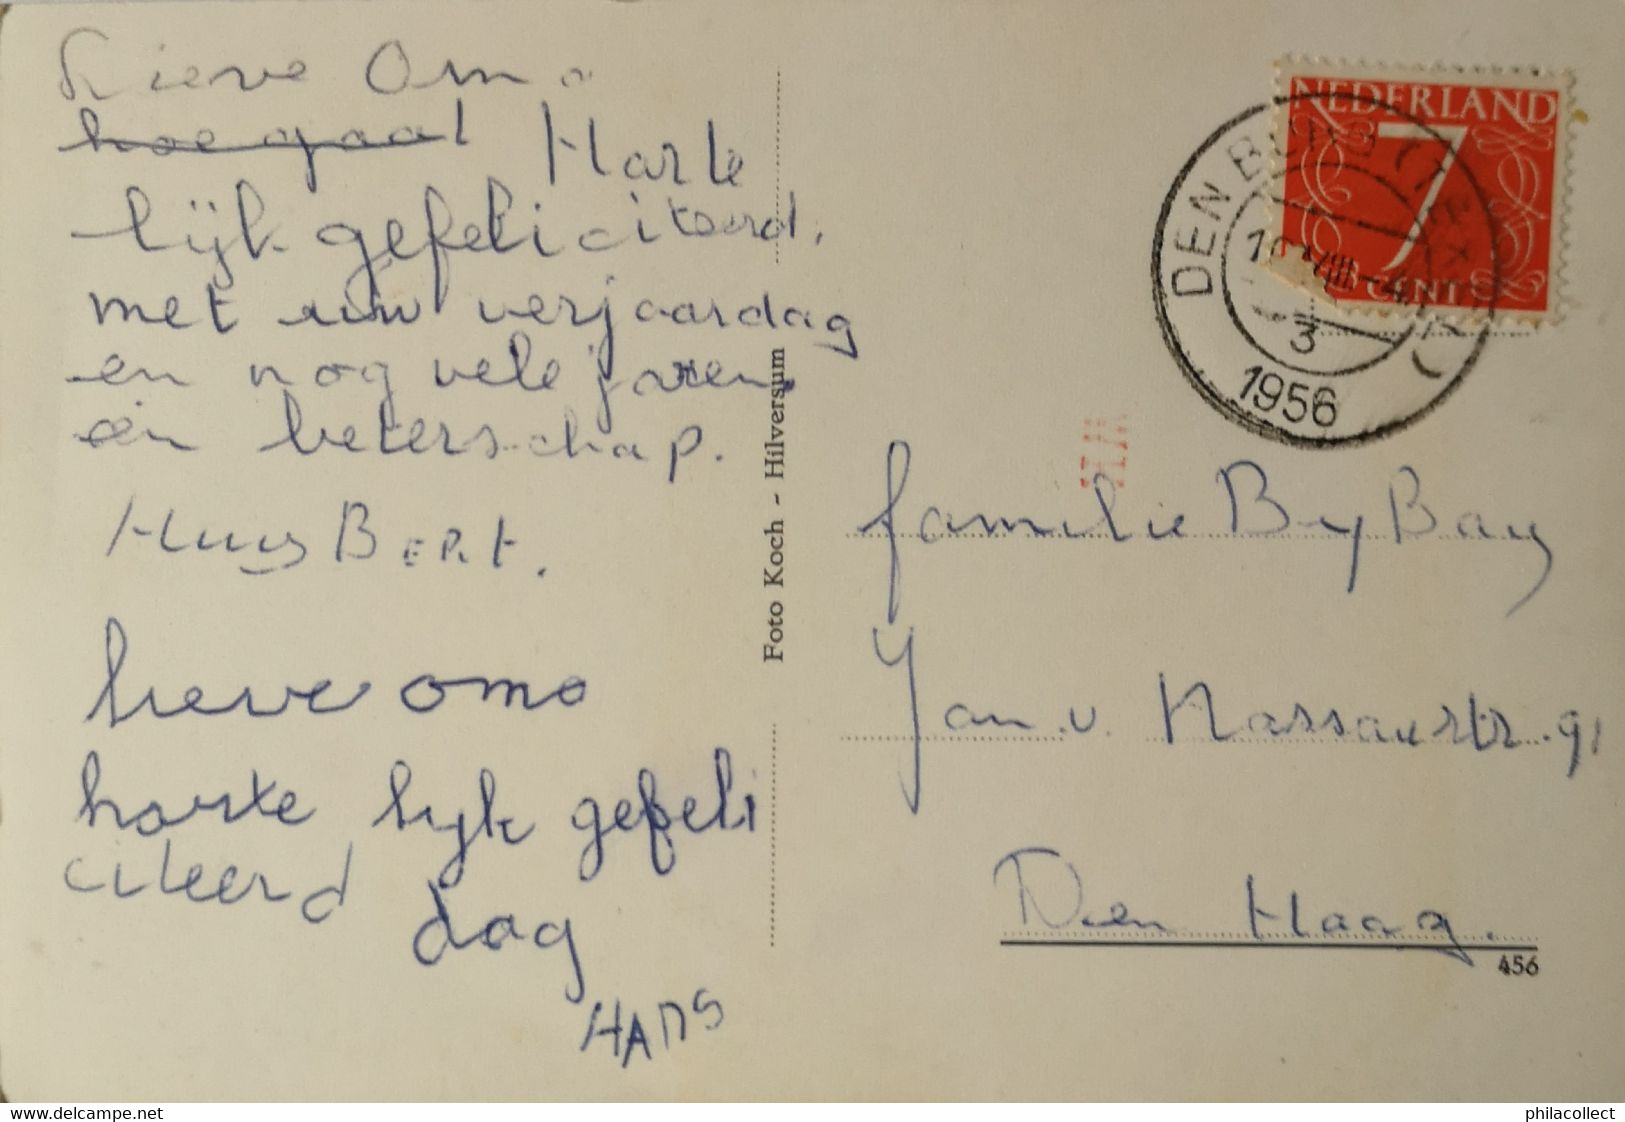 Lieve Oma
hoe gaat Harte
lijk gefeliciteerd,
met uw verjaardag
en nog vele jaren,
en beterschap.
HuysBERt.
lieve oma
harte lijk gefeli
citeerd dag
HANS
Foto Koch - Hilversum
NEDERLAND
7
CENT
DEN BURG (TEXEL)
VIII-4
3
1956
familie
Jan v. Nassaustr. 91
Den Haag.
456
delcampe.net
philacollect